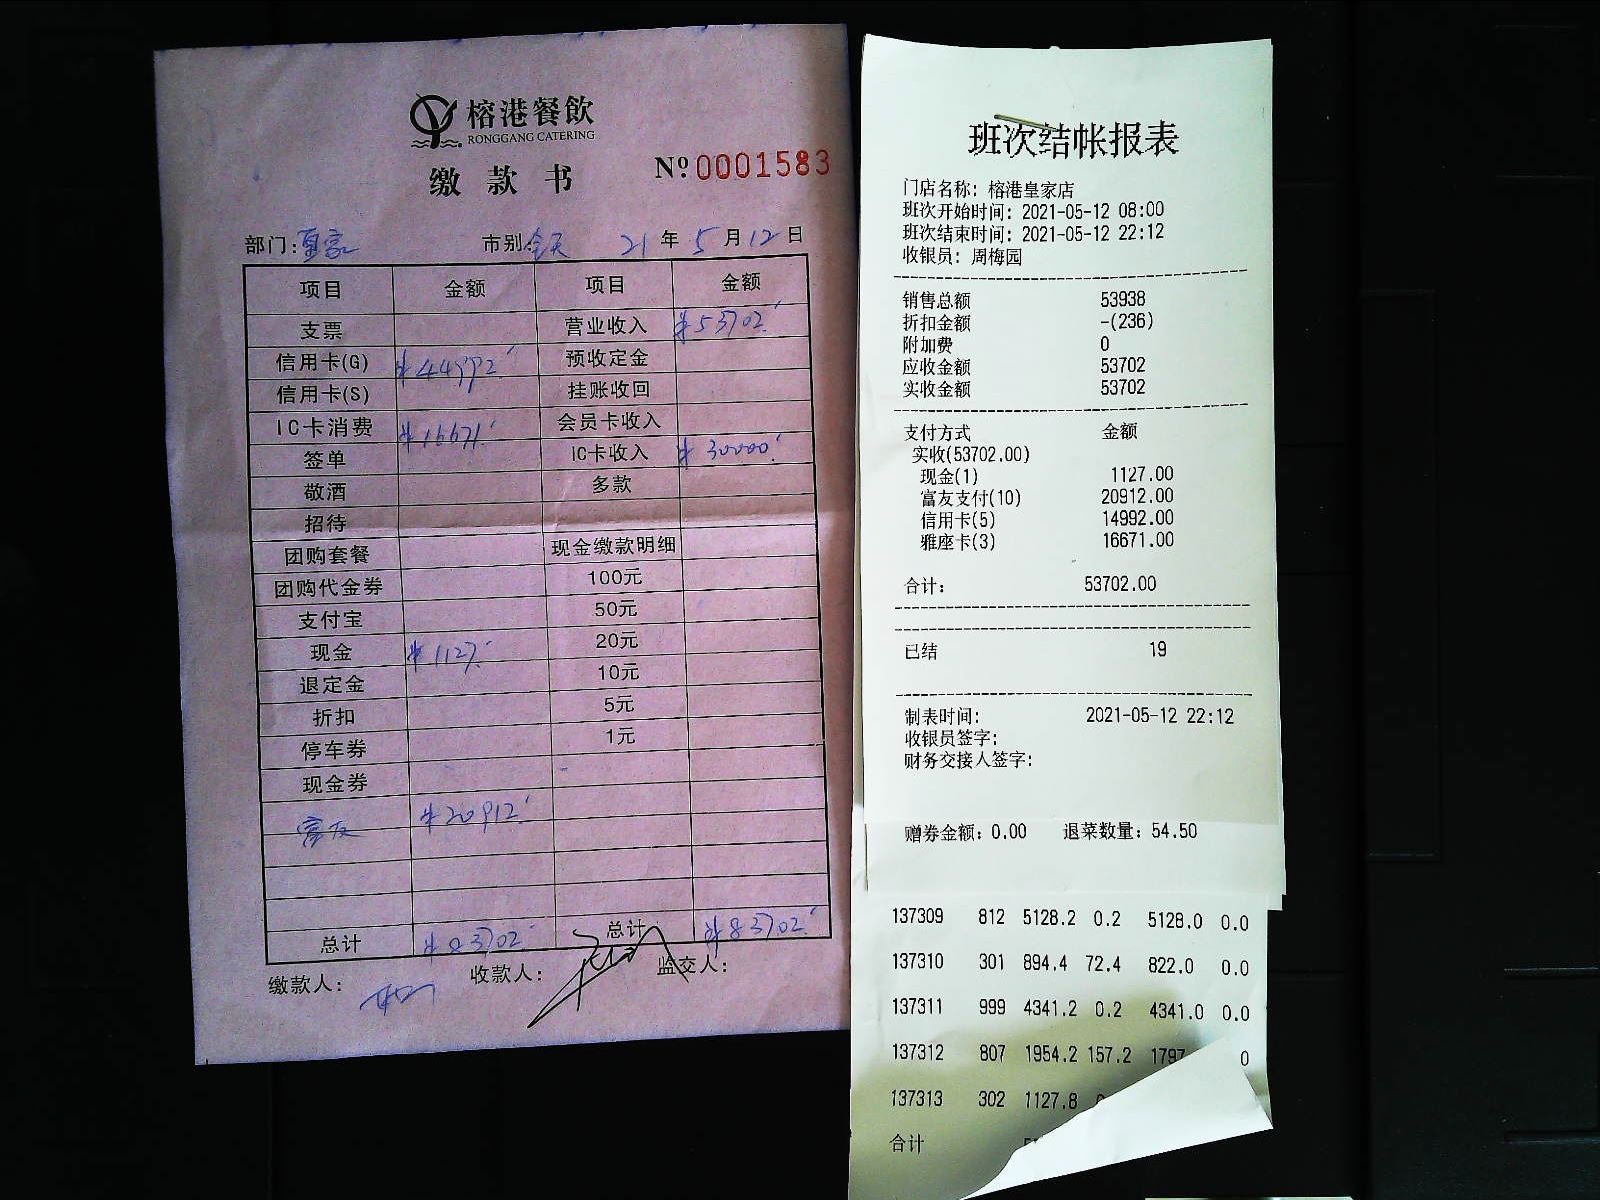 榕港餐飲
RONGGANG CATERING
缴款书
№0001583
部门:皇家 市别:全天 21年5月12日
项目 金额 项目 金额
支票 营业收入 ¥53702.
信用卡(G) ¥44992. 预收定金
信用卡(S) 挂账收回
IC卡消费 ¥16671. 会员卡收入
签单 IC卡收入 ¥30000.
敬酒 多款
招待
团购套餐 现金缴款明细
团购代金券 100元
支付宝 50元
现金 ¥1127. 20元
退定金 10元
折扣 5元
停车券 1元
现金券
富友 ¥20912.
总计 ¥83702. 总计 ¥83702.
缴款人: 收款人: 监交人:
班次结帐报表
门店名称: 榕港皇家店
班次开始时间: 2021-05-12 08:00
班次结束时间: 2021-05-12 22:12
收银员: 周梅园
销售总额 53938
折扣金额 -(236)
附加费 0
应收金额 53702
实收金额 53702
支付方式 金额
实收(53702.00)
现金(1) 1127.00
富友支付(10) 20912.00
信用卡(5) 14992.00
雅座卡(3) 16671.00
合计: 53702.00
已结 19
制表时间: 2021-05-12 22:12
收银员签字:
财务交接人签字:
赠券金额: 0.00 退菜数量: 54.50
137309 812 5128.2 0.2 5128.0 0.0
137310 301 894.4 72.4 822.0 0.0
137311 999 4341.2 0.2 4341.0 0.0
137312 807 1954.2 157.2 1797 0
137313 302 1127.8
合计